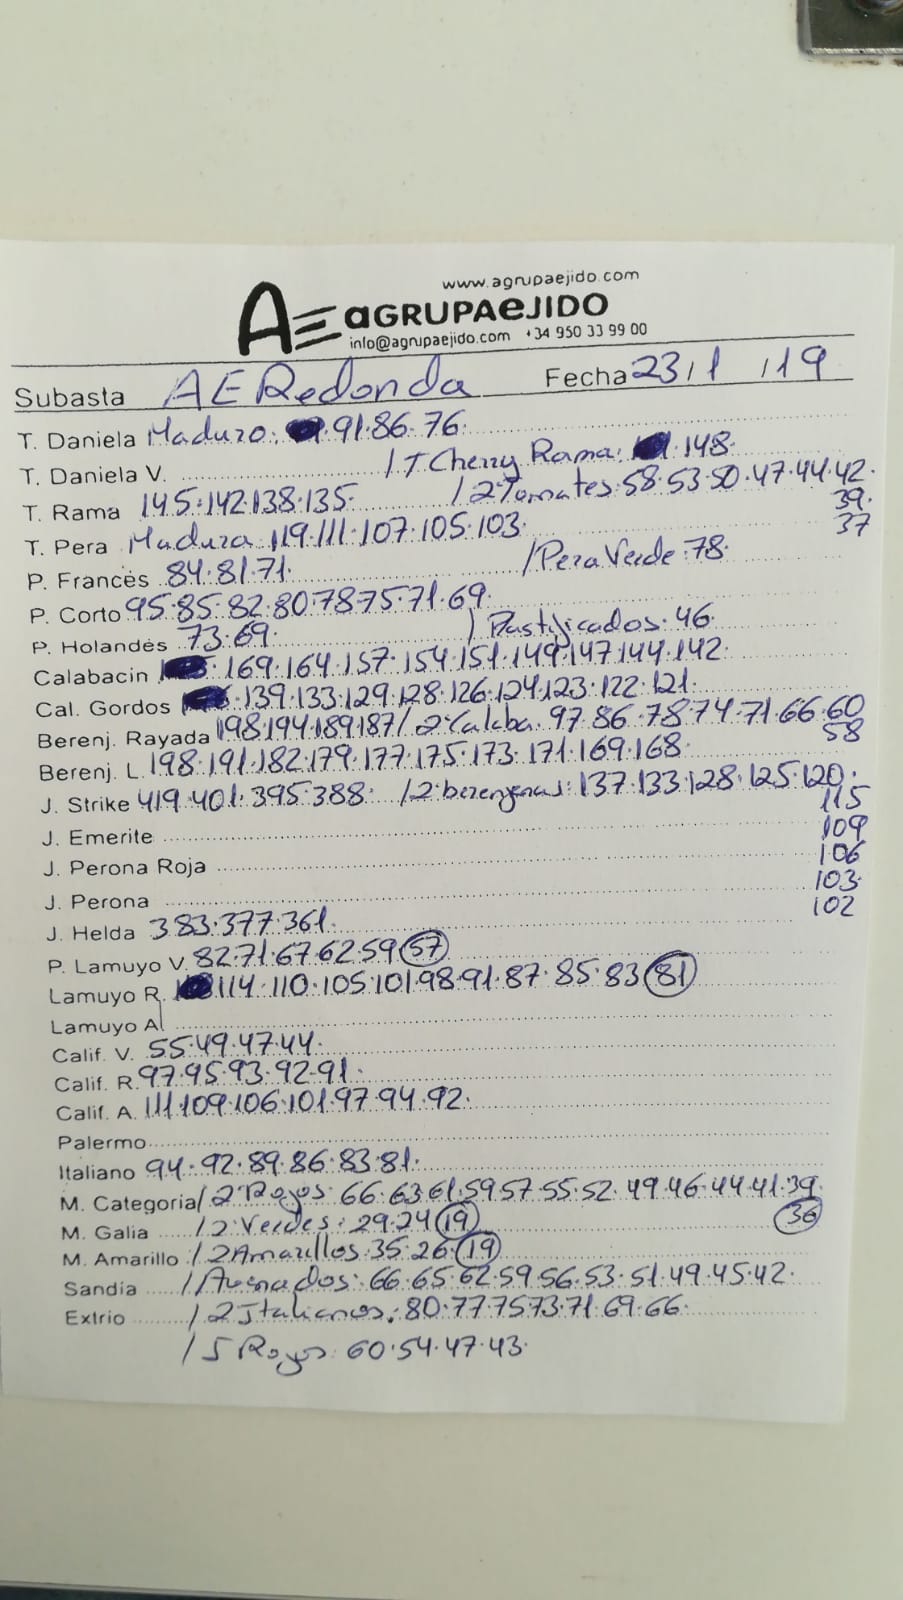 www.agrupaejido.com
AE aGRUPAeJIDO
info@agrupaejido.com +34 950 33 99 00
Subasta AE Redonda Fecha 23/1/19
T. Daniela Maduro: 91·86·76·
T. Daniela V. / T Cherry Rama: 148·
T. Rama 145·142·138·135· / 2ªTomates·58·53·50·47·44·42·
39·
T. Pera Madura 119·111·107·105·103·
37
P. Francés 84·81·71· / Pera Verde·78·
P. Corto 95·85·82·80·78·75·71·69·
P. Holandés 73·69· / Pastificados·46
Calabacin 169·164·157·154·151·149·147·144·142
Cal. Gordos 139·133·129·128·126·124·123·122·121·
Berenj. Rayada 198·194·189·187 / 2ªCalaba·97·86·78·74·71·66·60
58
Berenj. L. 198·191·182·179·177·175·173·171·169·168·
J. Strike 419·401·395·388· / 2ªberenjenas: 137·133·128·125·120·
115
J. Emerite
109
J. Perona Roja
106
J. Perona
103·
102
J. Helda 383·377·361·
P. Lamuyo V. 82·71·67·62·59 57
Lamuyo R. 114·110·105·101·98·91·87·85·83 81
Lamuyo A
Calif. V. 55·49·47·44·
Calif. R. 97·95·93·92·91·
Calif. A. 111·109·106·101·97·94·92·
Palermo
Italiano 94·92·89·86·83·81·
M. Categoria / 2ªRojos· 66·63·61·59·57·55·52·49·46·44·41·39·
M. Galia / 2·Verdes: 29·24 19
36
M. Amarillo / 2Amarillos·35·26· 19
Sandía / Asurados: 66·65·62·59·56·53·51·49·45·42·
Extrio / 2 Italianos: 80·77·75·73·71·69·66·
/ 5 Rojos· 60·54·47·43·